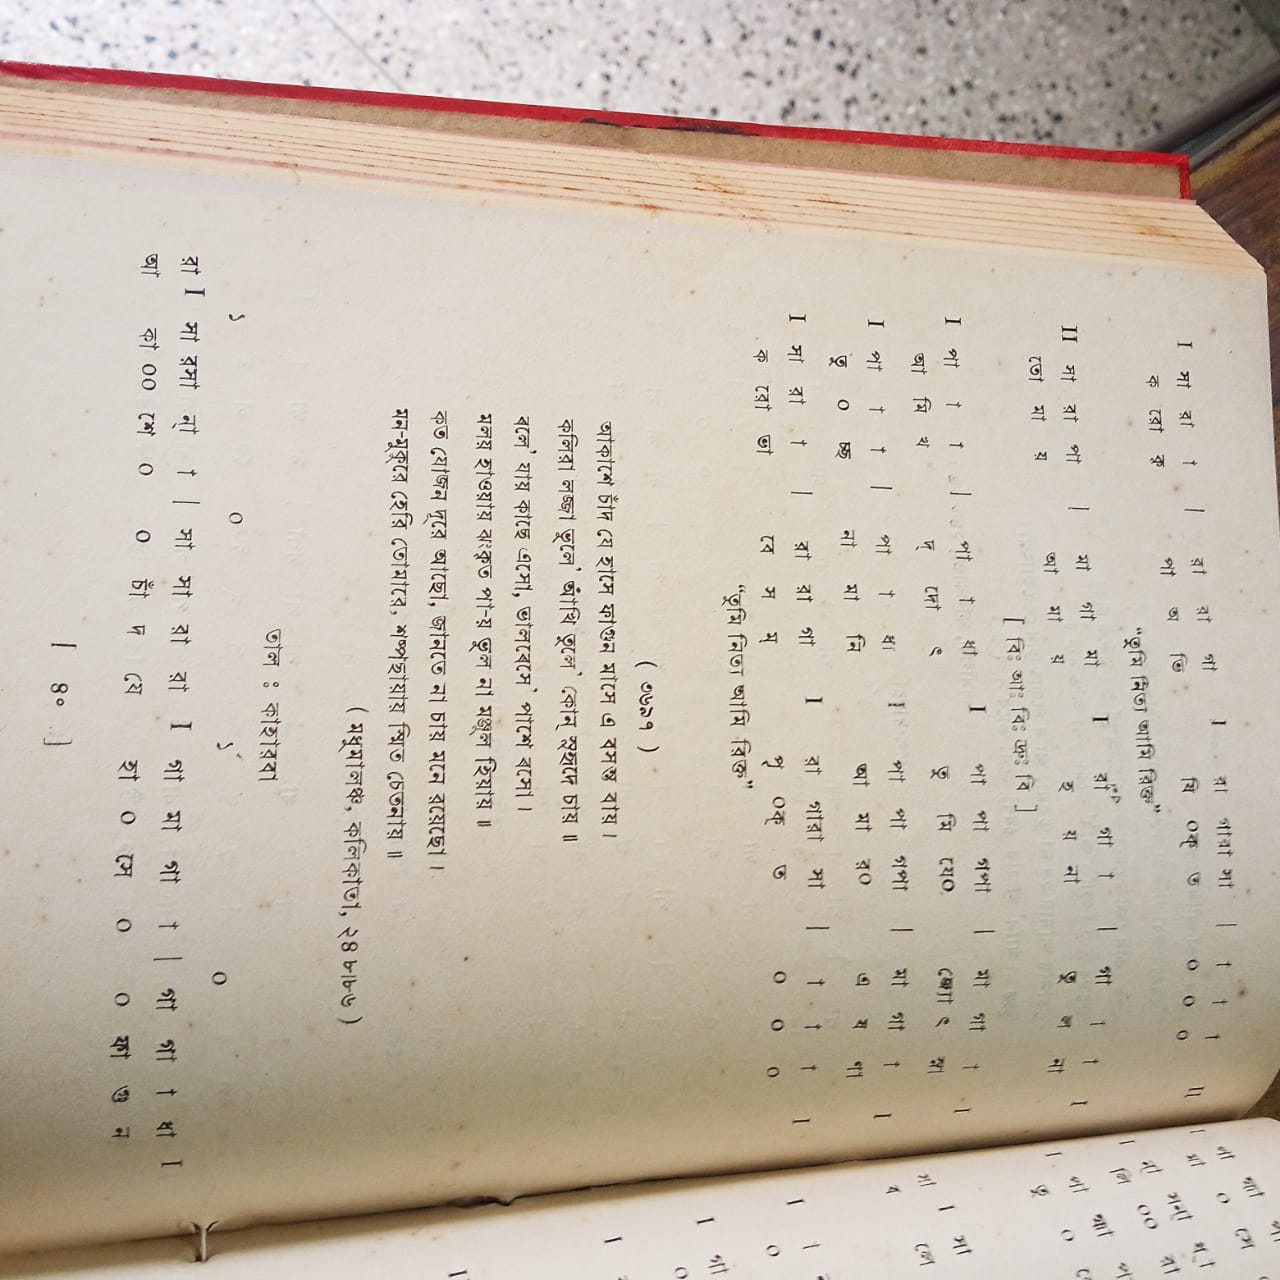 I সা রা † | রা রা গা I রা গারা সা | † † † II
ক রো কৃ পা ভ তি রি ০ক্ ত ০ ০ ০
"তুমি নিত্য আমি রিক্ত"
II সা রা পা | মা গা মা I রা গা † | গা † † I
তো মা য় আ মা য় হ য় না তু ল না
[ বিঃ আঃ বিঃ কঃ বি ]
I পা † † | পা † ধা I পা পা পপা | মা গা † I
আ মি য দু দো ৎ তু মি যে০ জ্যো ৎ স্না
I পা † † | পা † ধা I পা পা পপা | মা গা † I
তু ০ চ্ছ না মা নি আ মা র০ এ ম
I সা রা † | রা রা গা I রা গারা সা | † † † I
ক রো ভা বে স ম্ পৃ ০ক্ ত ০ ০ ০
"তুমি নিত্য আমি রিক্ত"
( ৩৬৯৭ )
আকাশে চাঁদ যে হাসে ফাগুন মাসে এ বসন্ত বায়।
কলিরা লজ্জা ভুলে' আঁখি তুলে' কোন্ সুহৃদে চায়॥
বলে' যায় কাছে এসো, ভালবেসে' পাশে বসো।
মলয় হাওয়ায় ঝংকৃত পা-য় ভুল না মঞ্জুল হিয়ায়॥
কত যোজন দূরে আছো, জানতে না চায় মনে রয়েছো।
মন-মুকুরে হেরি তোমারে, শষ্পছায়ায় স্মিত চেতনায়॥
( মধুমালঞ্চ, কলিকাতা, ২৪৮।৮৬ )
তাল : কাহারবা
১ ০ ১ ০
রা I সা রসা ন্ † | সা সা রা রা I গা মা গা † | গা গা † ধা I
আ কা ০০ শে ০ ০ চাঁ দ যে হা ০ সে ০ ০ ফা গু ন
[ ৪০ ]